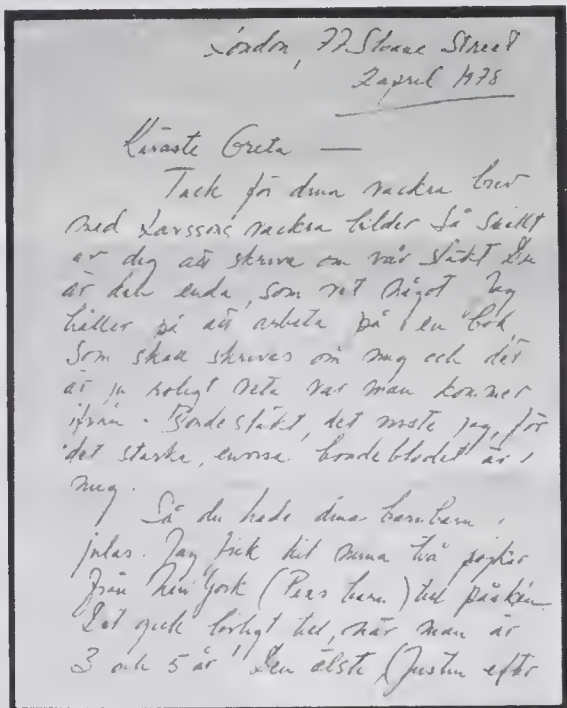 London, 77 Sloane Street
2 april 1978
Käraste Greta —
Tack för dina vackra brev
med Larssons vackra bilder Så snällt
av dig att skriva om vår släkt Du
är den enda, som vet något Jag
håller på att arbeta på en bok,
som skall skrivas om mig och det
är ju roligt veta var man kommer
ifrån. Bondesläkt, det visste jag, för
det starka, envisa bondeblodet är i
mig.
Så du hade dina barnbarn i
julas. Jag fick hit mina två pojkar
från New York (Pias barn) till påsken
Det gick livligt till, när man är
3 och 5 år Den älste (Justin efter